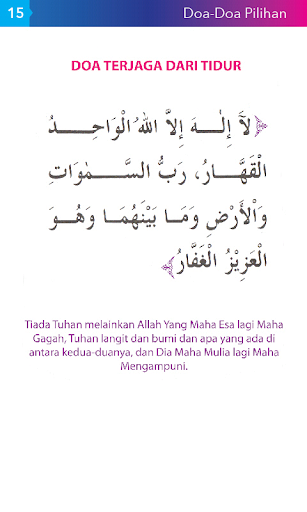 15
Doa-Doa Pilihan
DOA TERJAGA DARI TIDUR
لَآ إِلٰـهَ إِلاَّ اللهُ الْوَاحِـدُ
الْقَهَّـارُ، رَبُّ السَّـمٰوَاتِ
وَالْأَرْضِ وَمَـا بَيْنَهُمَـا وَهُـوَ
الْعَزِيْزُ الْغَفَّارُ
Tiada Tuhan melainkan Allah Yang Maha Esa lagi Maha
Gagah, Tuhan langit dan bumi dan apa yang ada di
antara kedua-duanya, dan Dia Maha Mulia lagi Maha
Mengampuni.